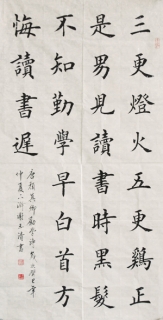 三更燈火五更鷄正
是男兒讀書時黑髮
不知勤學早白首方
悔讀書遲
唐顏真卿勸學詩 癸巳年
仲夏